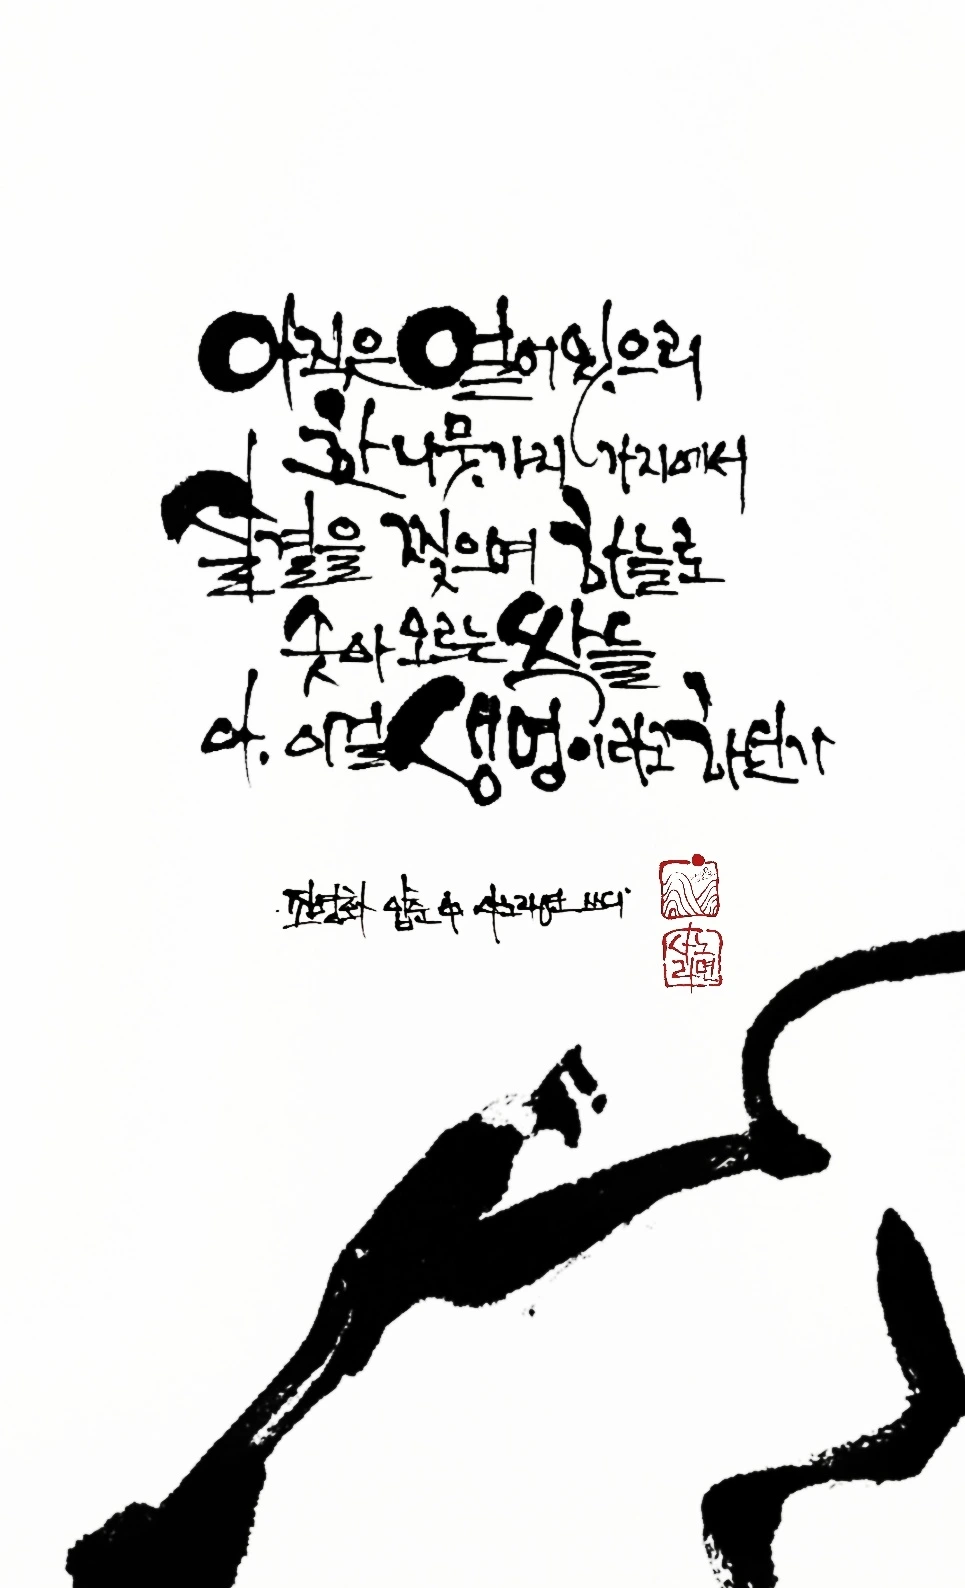 아직은 얼어있으리
한 나뭇가지 가지에서
살결을 찢으며 하늘로
솟아오르는 싹들
아, 이걸 생명이라고 하던가
조병화 입춘 中 사노라면 쓰다
사노
라면